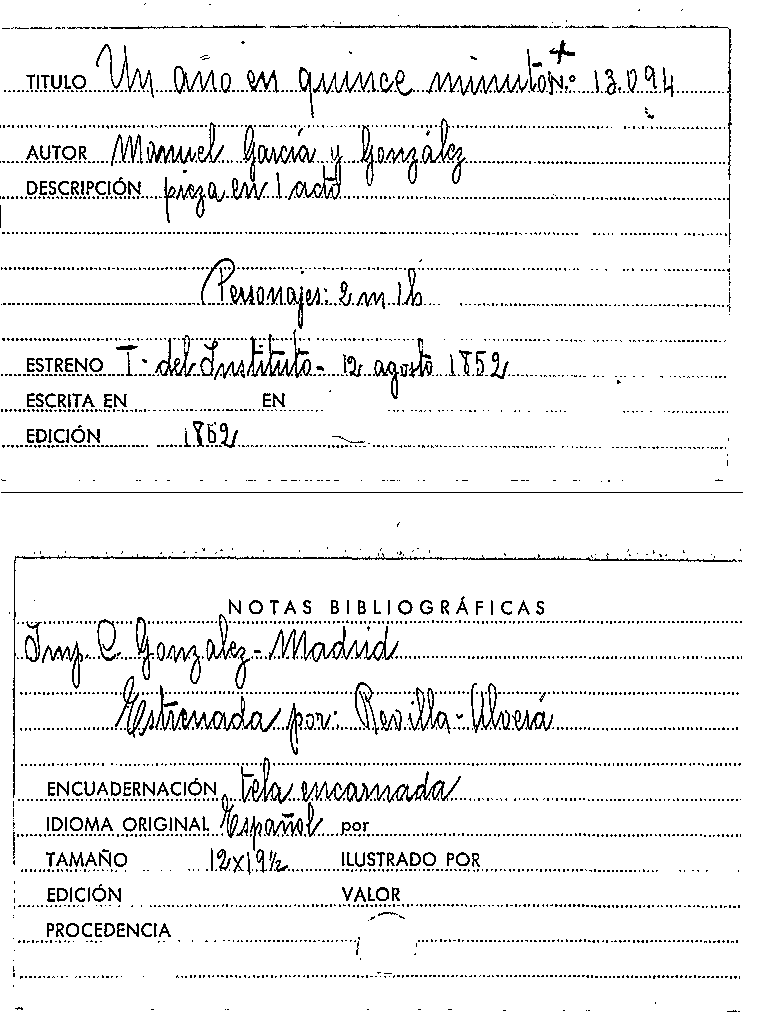 TITULO Un año en quince minutos N.º 13.094
AUTOR Manuel García y González
DESCRIPCIÓN pieza en 1 acto
Personajes: 2 m 1 h
ESTRENO T. del Instituto - 12 agosto 1852
ESCRITA EN EN
EDICIÓN 1852
NOTAS BIBLIOGRÁFICAS
Imp. C. González - Madrid
Estrenada por: Revilla - Alverá
ENCUADERNACIÓN tela encarnada
IDIOMA ORIGINAL Español por
TAMAÑO 12x19½ ILUSTRADO POR
EDICIÓN VALOR
PROCEDENCIA